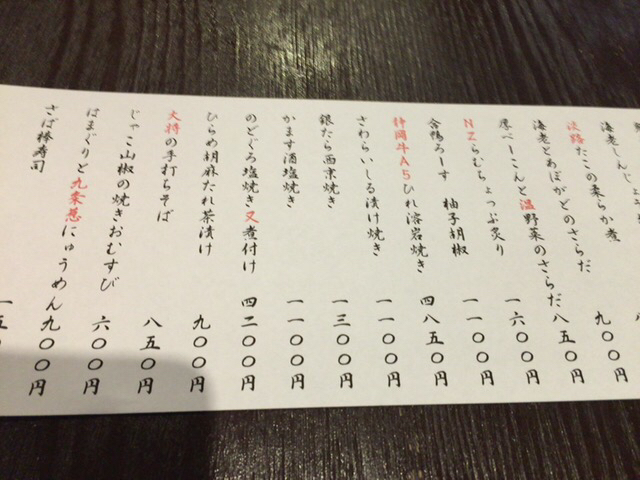 海老しんじょう
淡路たこの柔らか煮 八
海老とあぼがどのさらだ 九〇〇円
厚べーこんと温野菜のさらだ 八五〇円
NZらむちょっぷ炙り 一六〇〇円
合鴨ろーす 柚子胡椒 一一〇〇円
静岡牛A5ひれ溶岩焼き 四八五〇円
さわらいしる漬け焼き 一一〇〇円
銀たら西京焼き 一三〇〇円
かます酒塩焼き 一一〇〇円
のどぐろ塩焼き又煮付け 四二〇〇円
ひらめ胡麻だれ茶漬け 九〇〇円
大将の手打ちそば 八五〇円
じゃこ山椒の焼きおむすび 六〇〇円
はまぐりと九条葱にゅうめん 九〇〇円
さば棒寿司 一五